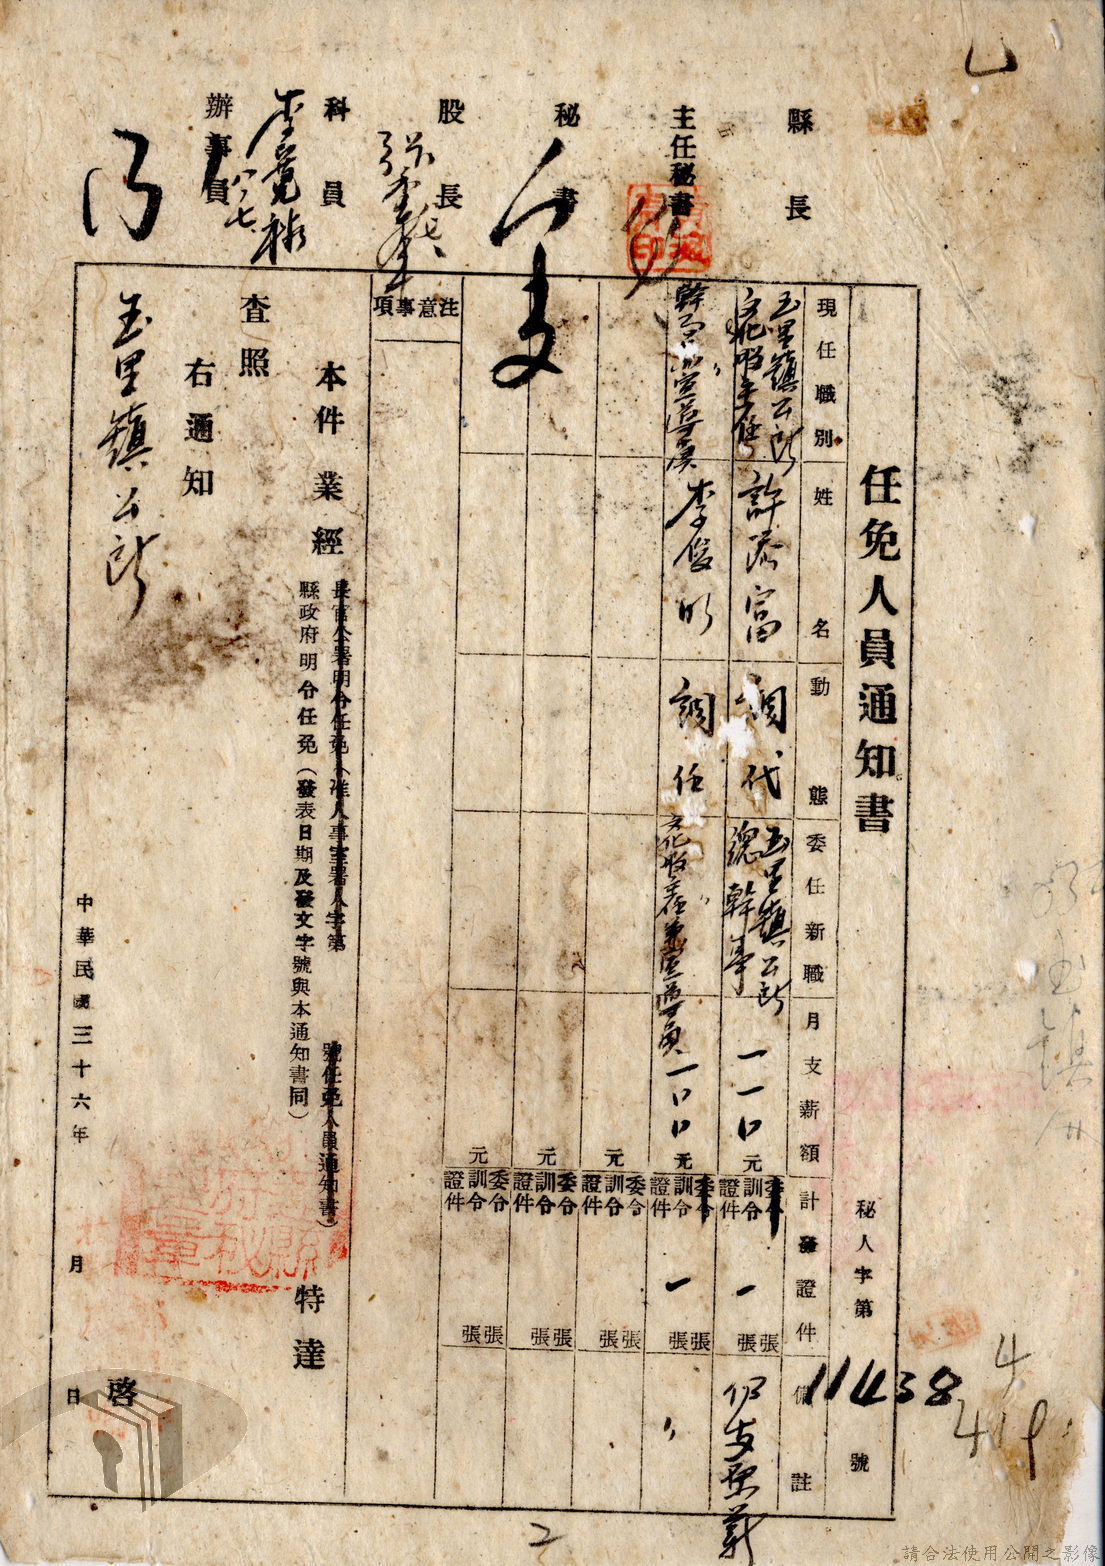 縣長
主任秘書
秘書
股長
科員
辦事員
任免人員通知書
秘人字第
11438
號
現任職別
姓名
動態
委任新職
月支薪額
計發證件
備註
玉里鎮公所
文化股主任
許添富
調代
玉里鎮公所
總幹事
一一〇
元
委令
訓令
證件
一
張
張
幹事兼宣導員
李俊明
調任
文化股主任兼宣導員
一〇〇
元
委令
訓令
證件
一
張
張
〃
元
委令
訓令
證件
張
張
元
委令
訓令
證件
張
張
元
委令
訓令
證件
張
張
注意事項
本件業經
長官公署明令任免(准人事室署人字第 號任免人員通知書)
縣政府明令任免(發表日期及發文字號與本通知書同)
特達
查照
右通知
玉里鎮公所
啓
中華民國三十六年 月 日
4
419
2
請合法使用公開之影像